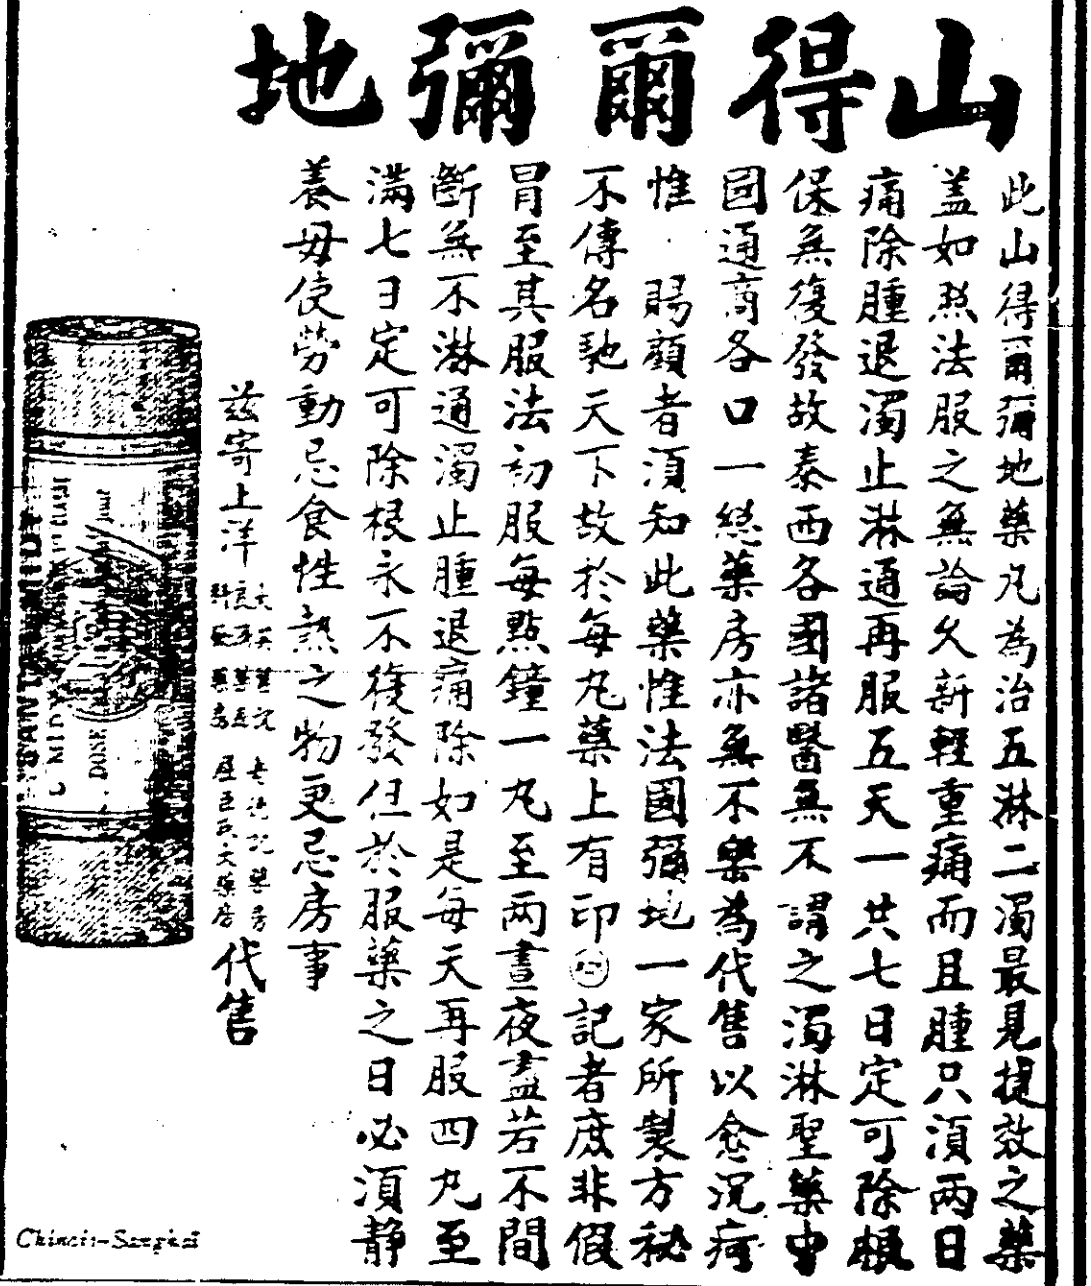 山得爾彌地
此山得爾彌地藥凡為治五淋二濁最見捷效之藥
蓋如照法服之無論久新輕重痛而且腫只湏兩日
痛除腫退濁止淋通再服五天一共七日定可除根
保無復發故泰西各國諸醫無不謂之濁淋聖藥中
國通商各口一總藥房亦無不樂為代售以愈沉疴
惟 賜顧者湏知此藥惟法國彌地一家所製方秘
不傳名馳天下故於每丸藥上有印記者庶非假
冒至其服法初服每點鐘一丸至兩晝夜盡若不間
斷無不淋通濁止腫退痛除如是每天再服四丸至
滿七日定可除根永不復發但於服藥之日必湏靜
養毋使勞動忌食性熱之物更忌房事
茲寄上洋
屈臣氏大藥房
代售
SANTAL MIDY
DOSE
Chinois-Sangkai